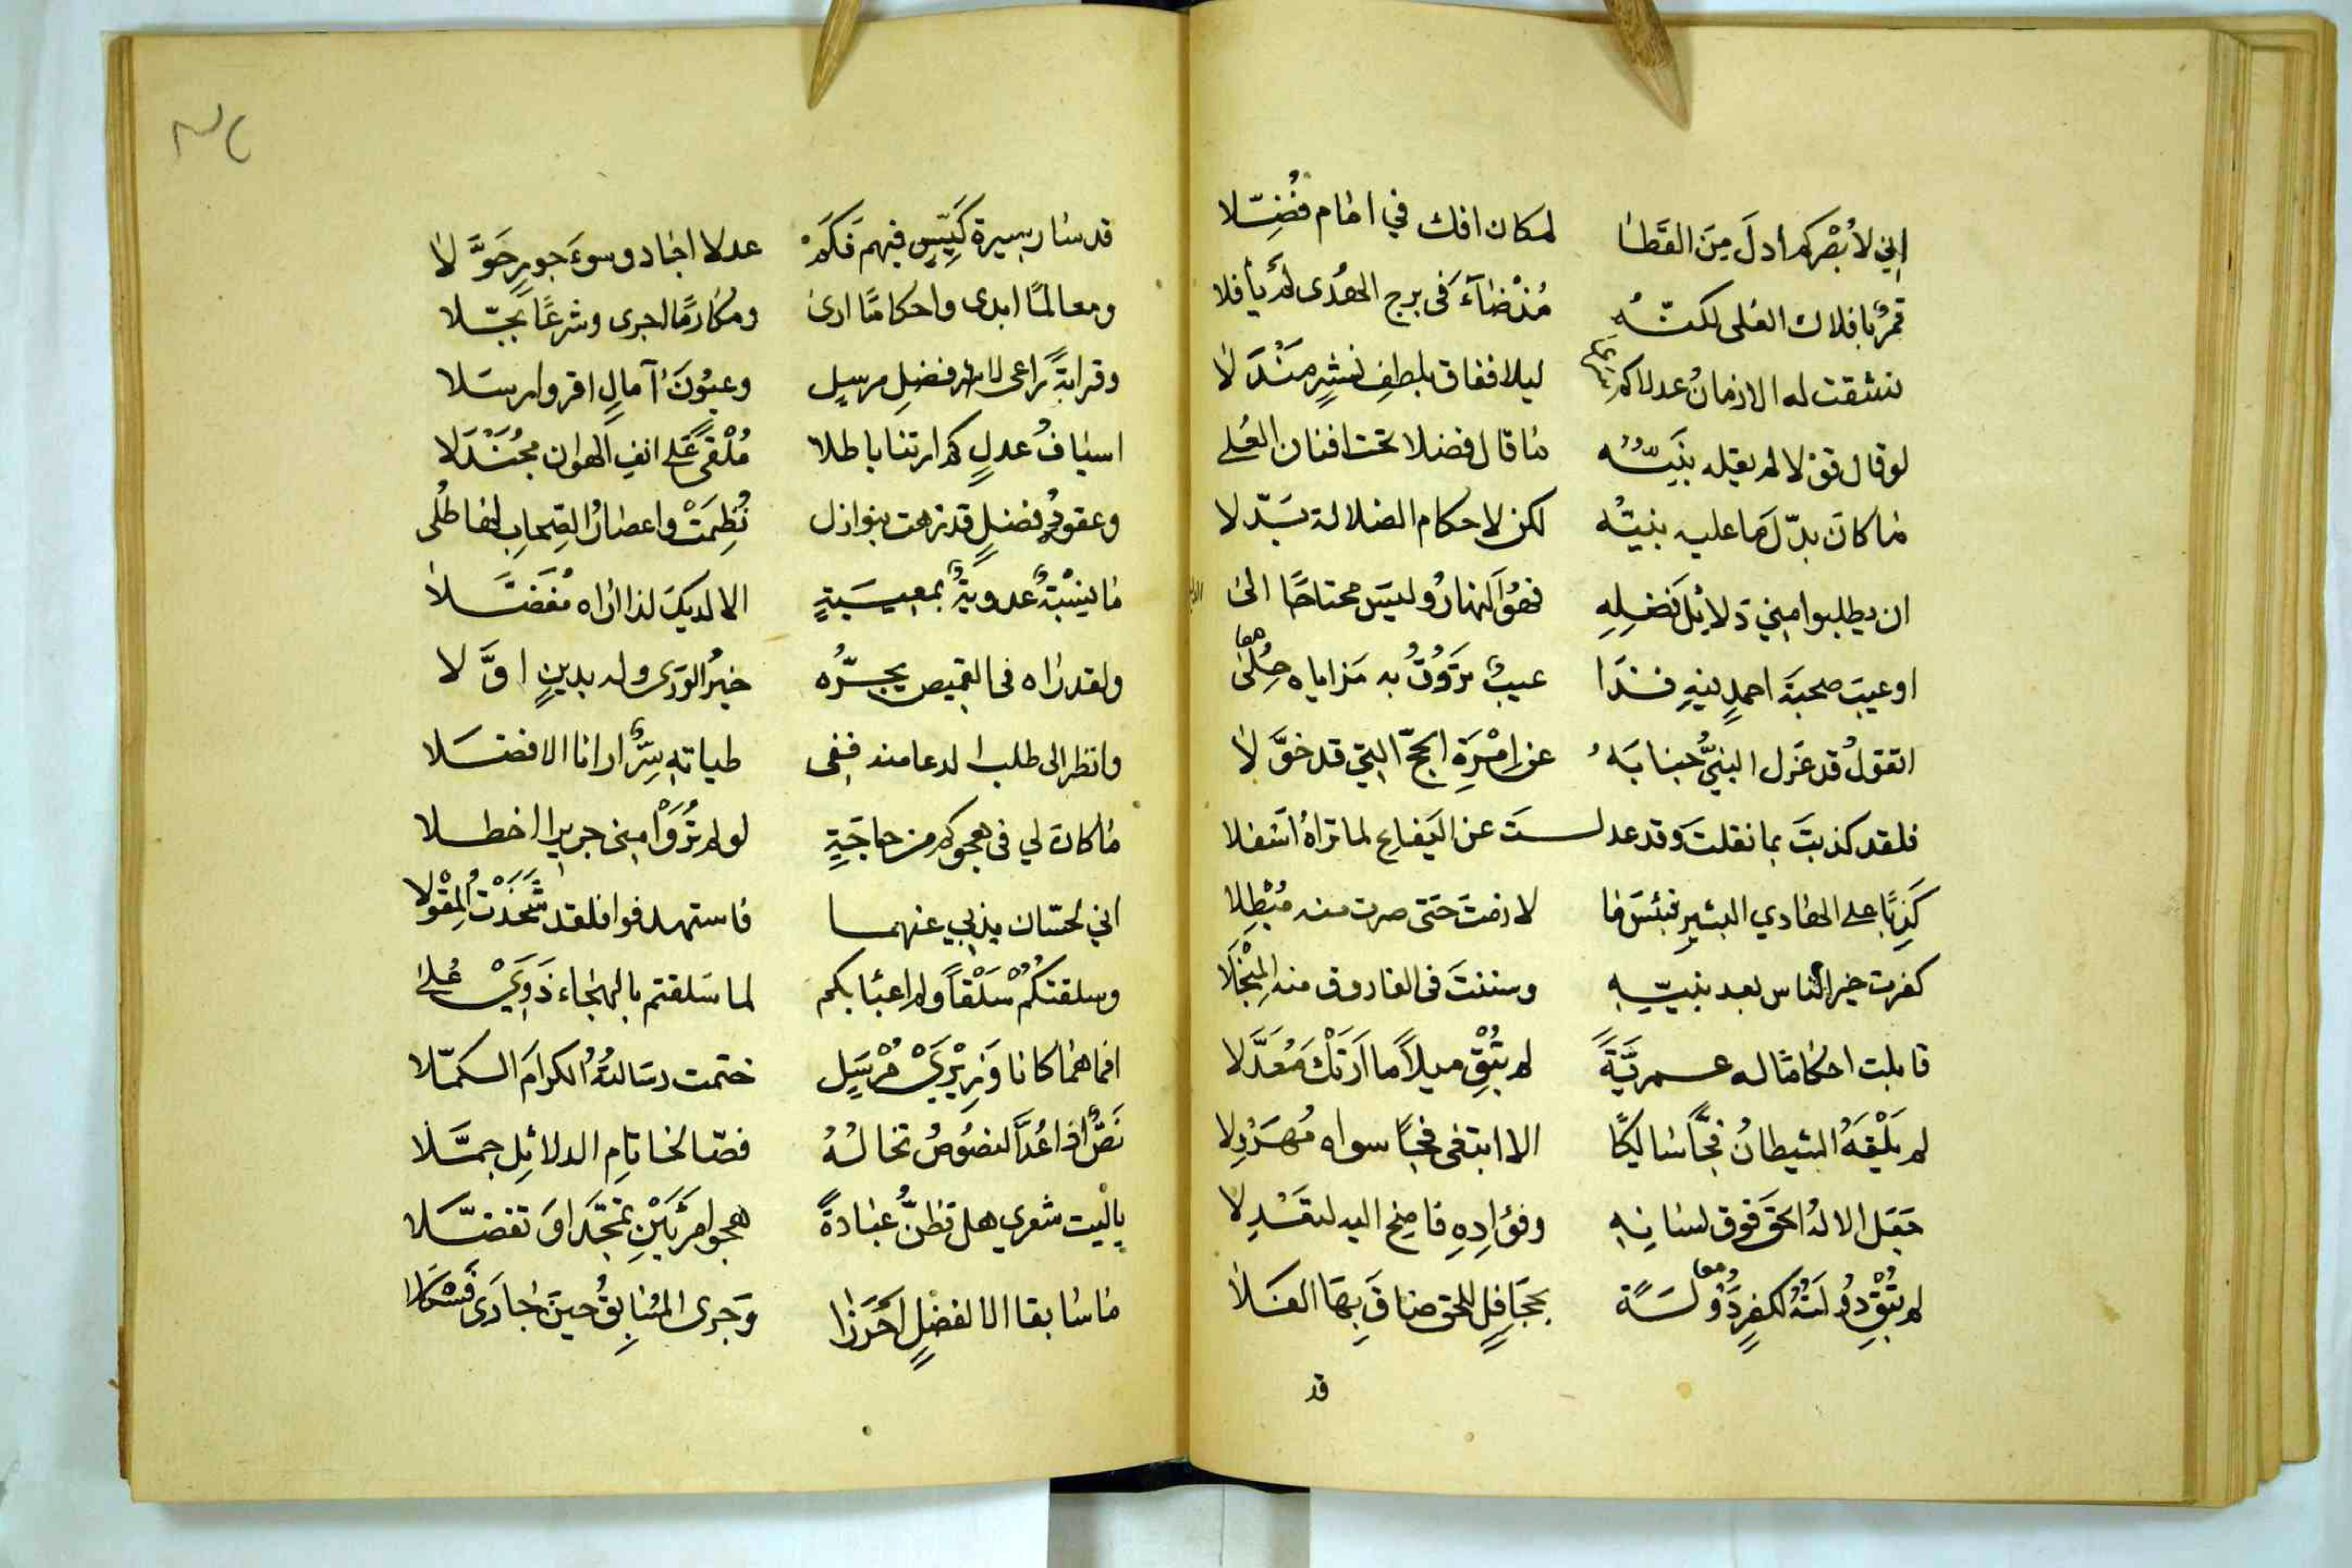 اني لأبْصركم ادلَ مِنَ القَطا لمكان افك في امام فُضِّلا
قمرٌ بافلاك العلى لكنّهُ مُذْ ضآءَ فى برج الهُدى لم يأفلا
نشقت له الازمانُ عدلا كم ليلا ففاق بلطفِ نشرٍ مَنْدَلا
لو قال قوْلا لم يقله نبَيّهُ ما قال فضلا تحت افنان العُلى
ما كان بدّلَ ما عليه نبيّه لكن لاحكام الضلالة بَدّلا
ان يطلبوا مني دَلائِلَ فَضلِهِ فهُوَ النهارُ وليسَ محتاجًا الى
او عيبَ صحبةَ احمدٍ فيهِ فذا عيبٌ تَرُوقُ به مَزاياه حُلى
اتقولُ قد عَزل النبيُّ جنابَهُ عن اِمْرَةِ الحجّ التي قد خوَّلا
فلقد كذبتَ بما نقلتَ وقد عدلستَ عن اليَفاع لما تراهُ اسفلا
كَذِبًا على الهادي البشيرِ فبئسَ ما لازمتَ حتى صرت منه مُبْطِلا
كفرت خير الناس بعد نبيّهِ وسننتَ فى الفاروق منه المِنْجَلا
قابلت احكاما له عمريَّةً لم تُبْقِ ميلاً ما ارَتْكَ مُعَدَّلا
لم يَلْقَهُ الشيطانُ فجًّا سالكًا الا ابتغى فجًّا سواه مُهَرْوِلا
جَعَل الالهُ الحقَ فوق لسانِهِ وفؤادِهِ فاصِخ اليه لتَعْدِلا
لم تُبْقِ دُولَتُهُ لكفرٍ دَوْلَةً بجَحافِلٍ للحق ضاقَ بِهَا الفَلا
قد
قد سار سيرة كَيّسٍ فيهم فَكَمْ عدلا اجاد وسوءَ جورٍ حَوَّلا
ومعالمًا ابدى واحكامًا ارى ومكارمًا اجرى وشرعًا بجّلا
وقرابةً راعى لاشرفضلِ مرسلٍ وعيُونَ آمالٍ اقر وارسَلا
اسيافُ عدلٍ كم ارتنا باطلا مُلْقىً عَلى انفِ الهوان مجُنْدَلا
وعقودُ فضلٍ قد زهت بنوازل نُظِمَتْ واعضادُ الصِحابِ لها طُلى
ما نِسْبَةٌ عدويةٌ بمعيبَةٍ الا لديكَ لذا اراه مُفَضَّلا
ولقد رَاه فى القميص يجرُّه خيرُ الورى وله بدينٍ اوَّلا
وانظر الى طلب الدعا منه ففى طياتِهِ سِرٌّ ارانا الافضَلا
ما كان لي فى هجوكم من حاجَةٍ لو لم تُرَوْا مني جريرا اخطلا
اني لحسّان بذبي عنهما فاستهدفوا فلقد شَحَذْتُ المِقْوَلا
وسلقتكُمْ سَلْقاً ولم اعبَا بكم لما سَلقتم بالهجاء ذَوِيْ عُلى
افما هما كانا وَزِيْرَيْ مُرْسَلٍ ختمت رسَالتُهُ الكرامَ الكمّلا
نَصّا اذا عُدَّ النصُوصُ تخالهُ فصّا لخاتِم الدلائِل جمَّلا
يا ليت شعري هل تظنُّ عبادةً هجو امرَئَيْنِ تمجّدا وتفضَّلا
ما سابقا الا لفضلٍ اَحْرَزا وَجرى المُسَابِقُ حينَ جارَى فَسْكَلا